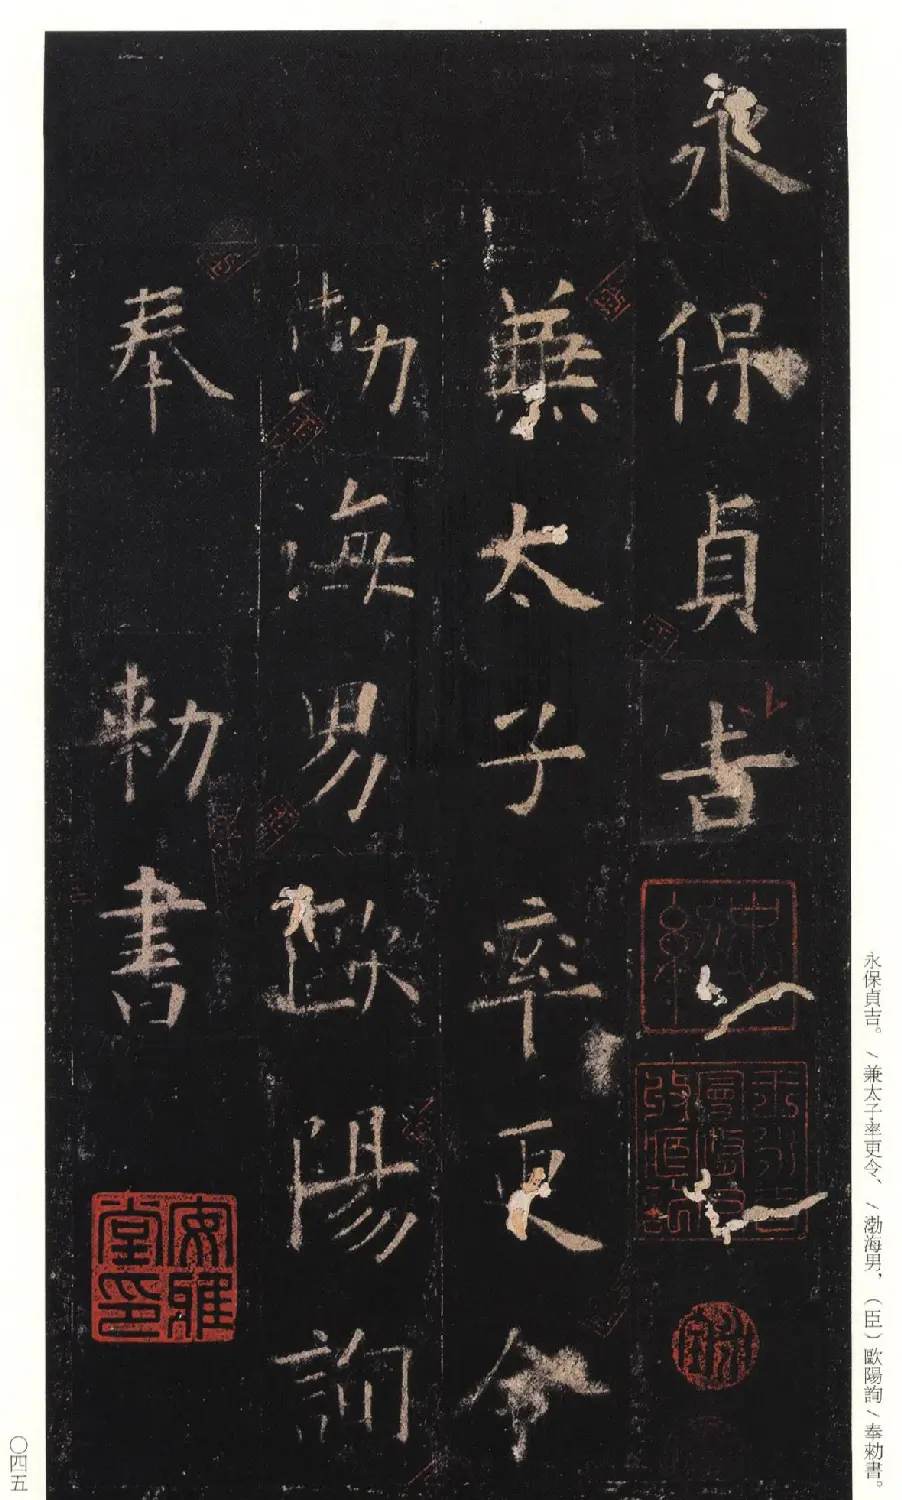 永保貞吉
兼太子率更令
勃海男歐陽詢
奉 勅書
安雅堂印
永保貞吉。/兼太子率更令、/渤海男,(臣)歐陽詢/奉勅書。
〇四五